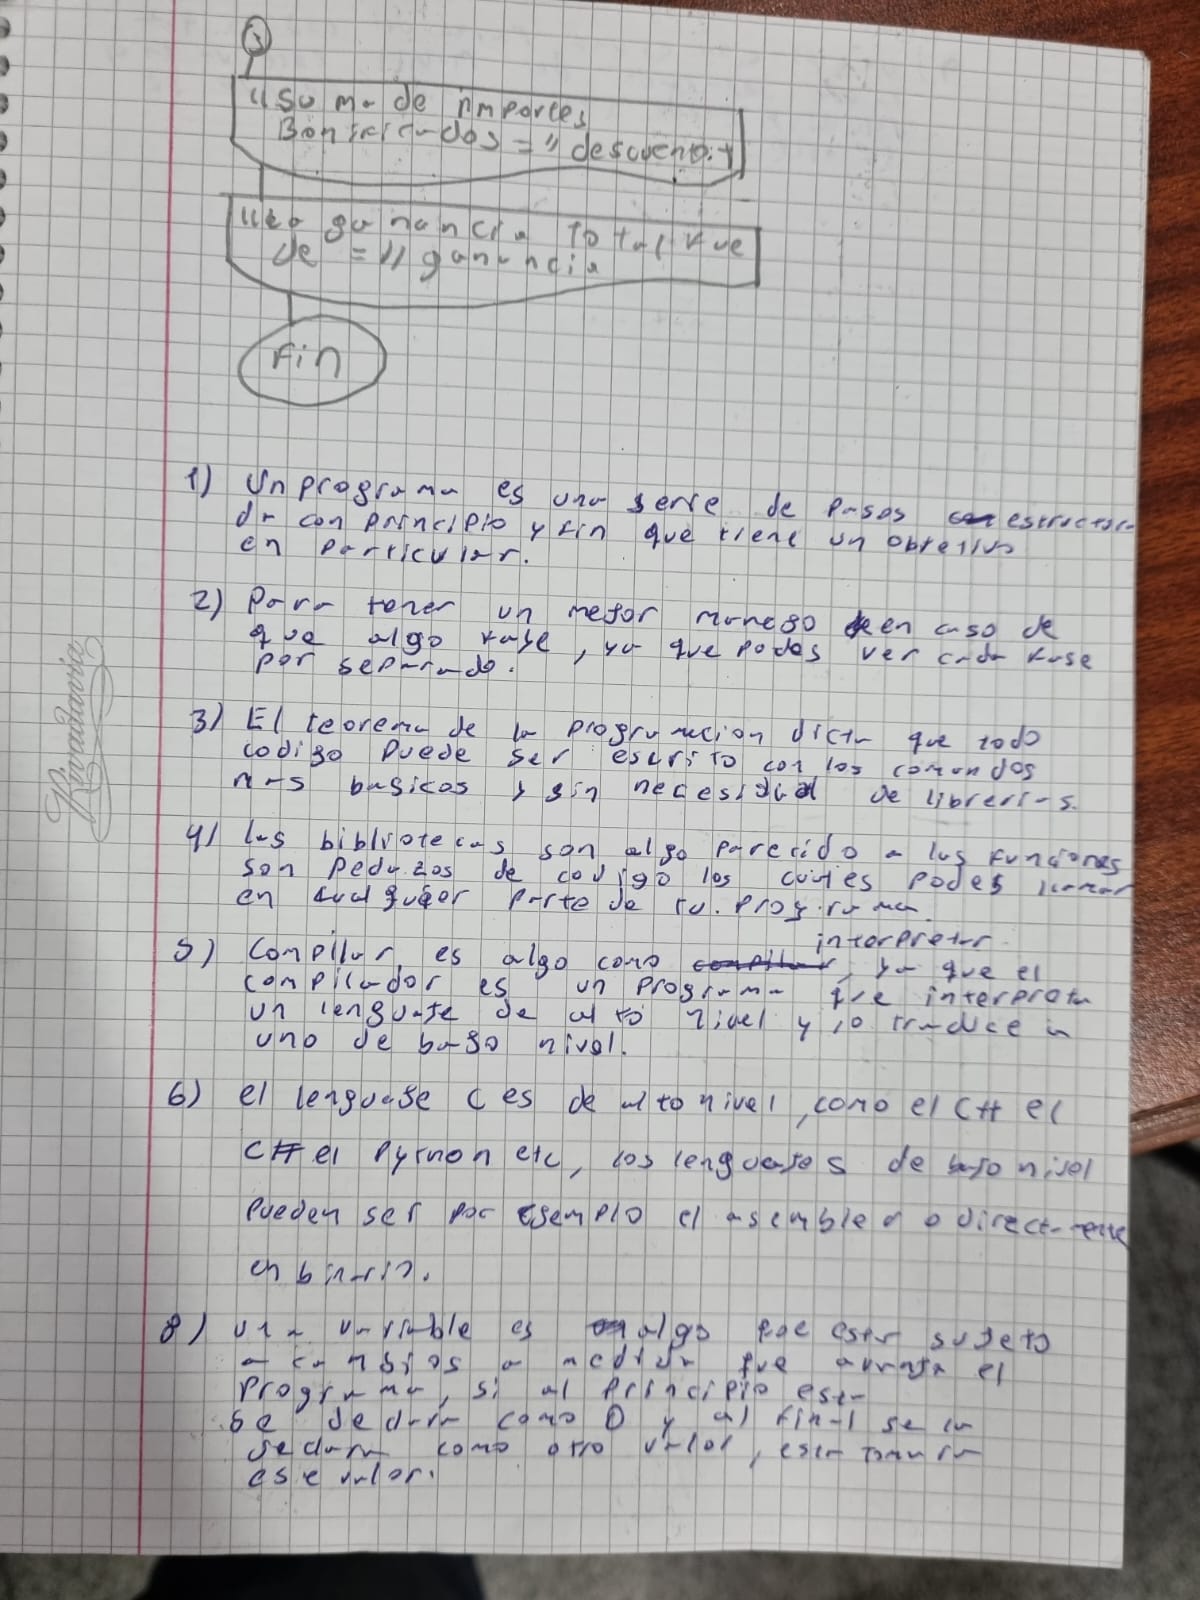 "Suma de importes
Bonificados = " descuento
"La ganancia total fue
de = " ganancia
Fin
1) Un programa es una serie de pasos estructura
da con principio y fin que tiene un objetivo
en particular.
2) Para tener un mejor manego en caso de
que algo falle, ya que podes ver cada fase
por separado.
3) El teorema de la programacion dicta que todo
codigo puede ser escrito con los comandos
mas basicos y sin necesidad de librerias.
4) las bibliotecas son algo parecido a las funciones
son pedazos de codigo los cuales podes llamar
en cualquier parte de tu programa.
interpretar
5) Compilar, es algo como compilar, ya que el
compilador es un programa que interpreta
un lenguaje de alto nivel y lo traduce a
uno de bajo nivel.
6) el lenguaje C es de alto nivel, como el C++ el
C# el Python etc, los lenguajes de bajo nivel
pueden ser por ejemplo el asembler o directamente
en binario.
8) una variable es algo que esta sujeto
a cambios a medida que avanza el
programa, si al principio esta
se declara como 0 y al final se la
declara como otro valor, esta tomara
ese valor.
Rivadavia